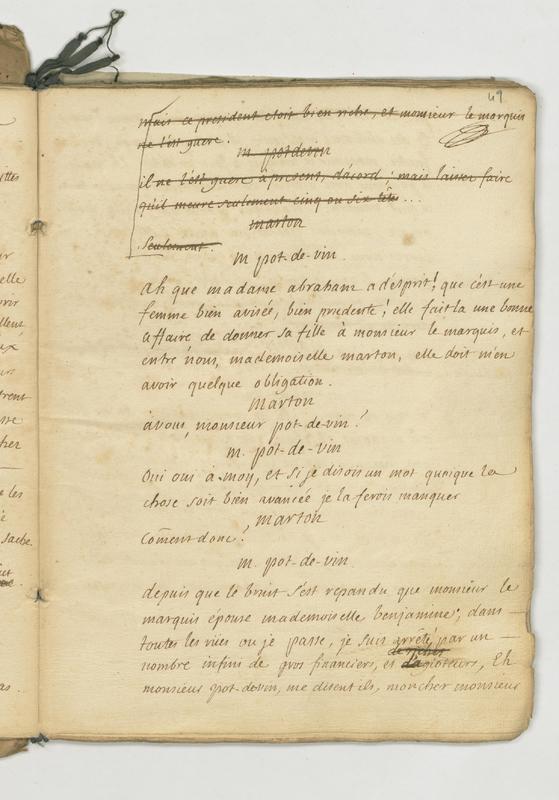 49
mais ce president etoit bien riche, et monsieur le marquis
ne l'est guere.
m potdevin
il ne l'est guere a present, d'acord; mais laisser faire
qu'il meure seulement cinq ou six
marton
seulement.
m pot-de-vin.
ah que madame abraham a d'esprit! que c'est une
femme bien avisée, bien prudente! elle fait la une bonne
affaire de donner sa fille à monsieur le marquis, et
entre nous, mademoiselle marton, elle doit m'en
avoir quelque obligation.
marton
à vous, monsieur pot-de-vin?
m. pot-de-vin
Oui oui à moy, et si je disois un mot quoique la
chose soit bien avancée je la ferois manquer
marton
Coment donc?
m. pot-de-vin
depuis que le bruit s'est repandu que monsieur le
marquis épouse mademoiselle benjamine; dans
toutes les rues ou je passe, je suis arrêté par un
nombre infini de gros financiers, et d'agioteurs, Eh
monsieur pot-devin, me disent ils, mon cher monsieur
elle
rir
ux
trent
cher
e les
sache
as.